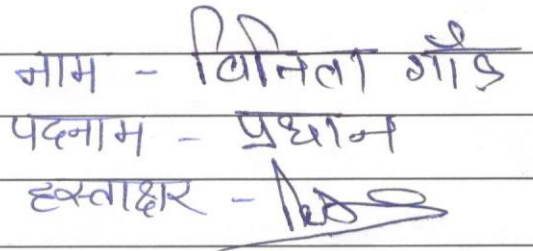 नाम - विनिता गौड
पदनाम - प्रधान
हस्ताक्षर -